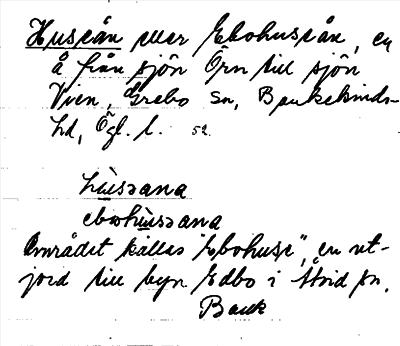 Husån eller Ebohusån, en
å från sjön Örn till sjön
Vien, Grebo sn, Bankekinds-
hd, Ögl. l. 52.
hùssana
ebohùssana
Området kallas "Ebohuse", en ut-
jord till byn Edbo i Åtvid sn.
Bank